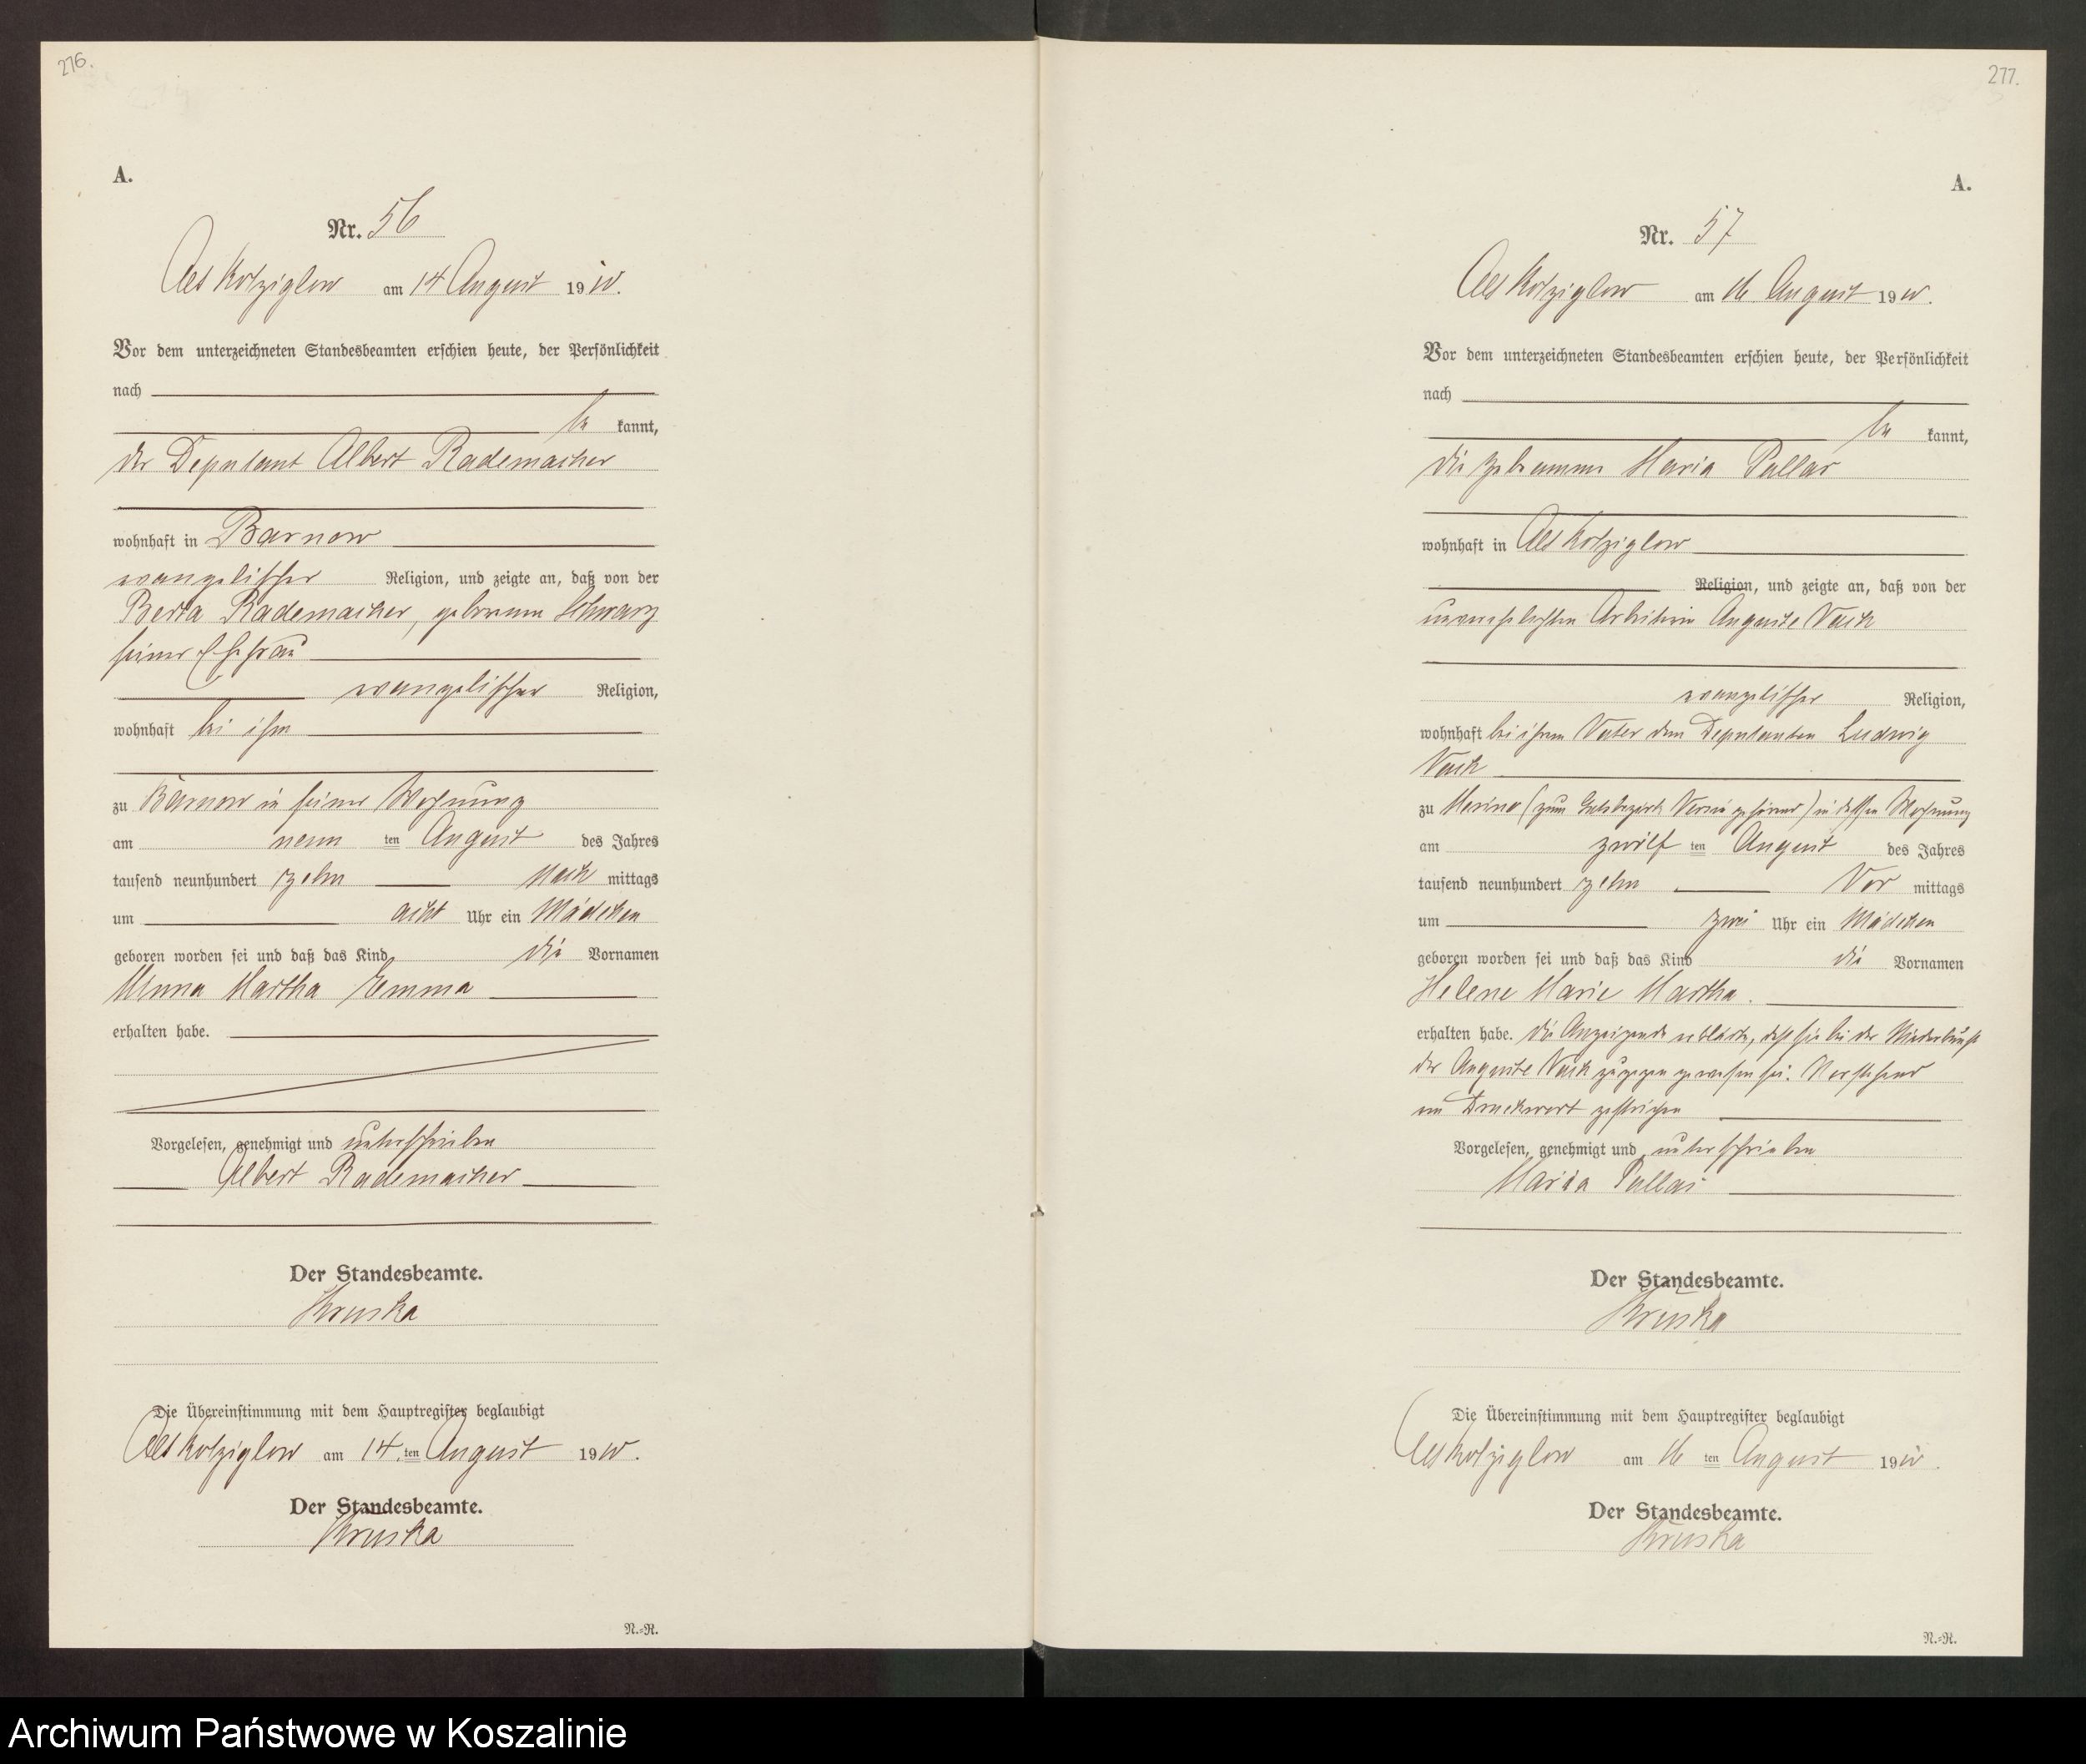 276.
A.
Nr. 56
Alt Kolziglow am 14 August 1910.
Vor dem unterzeichneten Standesbeamten erschien heute, der Persönlichkeit
nach
be kannt,
der Deputant Albert Rademacher
wohnhaft in Barnow
evangelischer Religion, und zeigte an, daß von der
Berta Rademacher, geborenen Schwarz
seiner Ehefrau
evangelischer Religion,
wohnhaft bei ihm
zu Barnow in seiner Wohnung
am neun ten August des Jahres
tausend neunhundert zehn Nach mittags
um acht Uhr ein Mädchen
geboren worden sei und daß das Kind die Vornamen
Minna Martha Emma
erhalten habe.
Vorgelesen, genehmigt und unterschrieben
Albert Rademacher
Der Standesbeamte.
Kruska
Die Übereinstimmung mit dem Hauptregister beglaubigt
Alt Kolziglow am 14. ten August 1910.
Der Standesbeamte.
Kruska
N.=R.
277.
A.
Nr. 57
Alt Kolziglow am 16 August 1910.
Vor dem unterzeichneten Standesbeamten erschien heute, der Persönlichkeit
nach
be kannt,
die Hebamme Maria Pallas
wohnhaft in Alt Kolziglow
Religion, und zeigte an, daß von der
unverehelichten Arbeiterin Auguste Vach
evangelischer Religion,
wohnhaft bei ihrem Vater dem Deputanten Ludwig
Vach
zu (zum Gutsbezirk gehörend) in dessen Wohnung
am zwölf ten August des Jahres
tausend neunhundert zehn Vor mittags
um zwei Uhr ein Mädchen
geboren worden sei und daß das Kind die Vornamen
Helene Marie Martha.
erhalten habe. Die Anzeigende erklärte, daß sie bei der Niederkunft
der Auguste Vach zugegen gewesen sei. Vorstehend
ein Druckwort gestrichen
Vorgelesen, genehmigt und unterschrieben
Maria Pallas
Der Standesbeamte.
Kruska
Die Übereinstimmung mit dem Hauptregister beglaubigt
Alt Kolziglow am 16 ten August 1910.
Der Standesbeamte.
Kruska
N.=R.
Archiwum Państwowe w Koszalinie